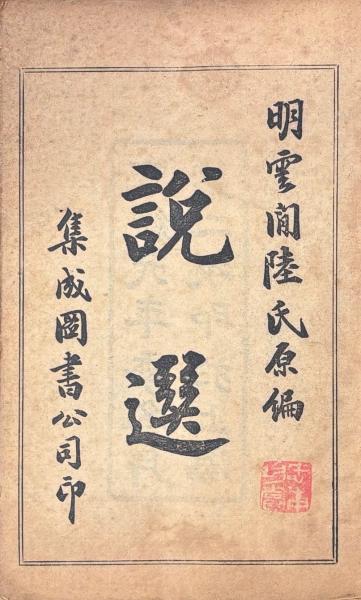 明雲間陸氏原編
說選
集成圖書公司印